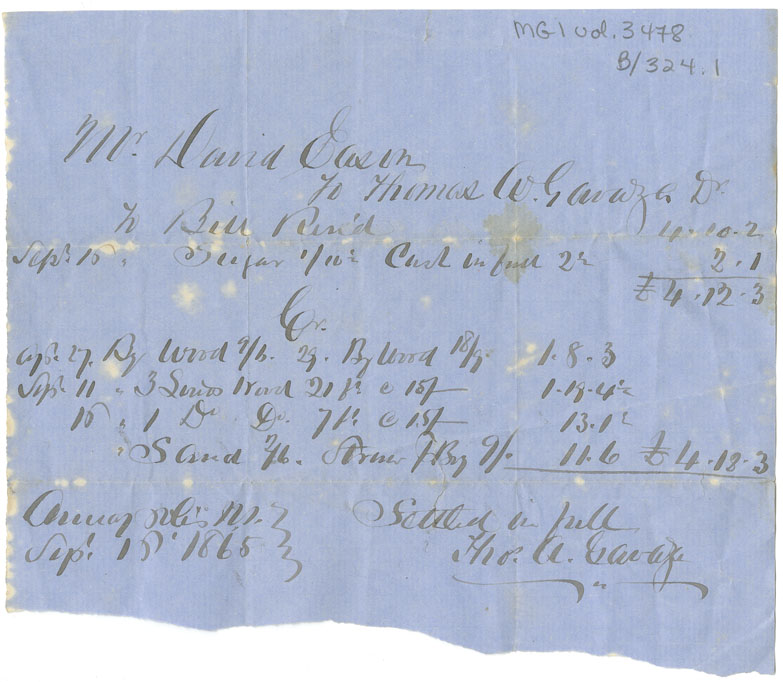 MG1 vol. 3478
B/324.1
Mr David Eason
To Thomas W. Dr.
To Bill 4.10.2
Sept 15 " Sugar Cash in full 2½ 2.1
£4.12.3
Cr.
27. By Wood 9/6. 29. By Wood 18/9 1.8.3
Sept 11 " 3 Wood 21 ft @ 15/ 1.19.4½
15 " 1 Do Do. 7 ft @ 15/ 13.1½
" Sand 2/6. By 9/. 11.6 £4.12.3
Annapolis
Sept 15t 1865
Settled in full
Thos.